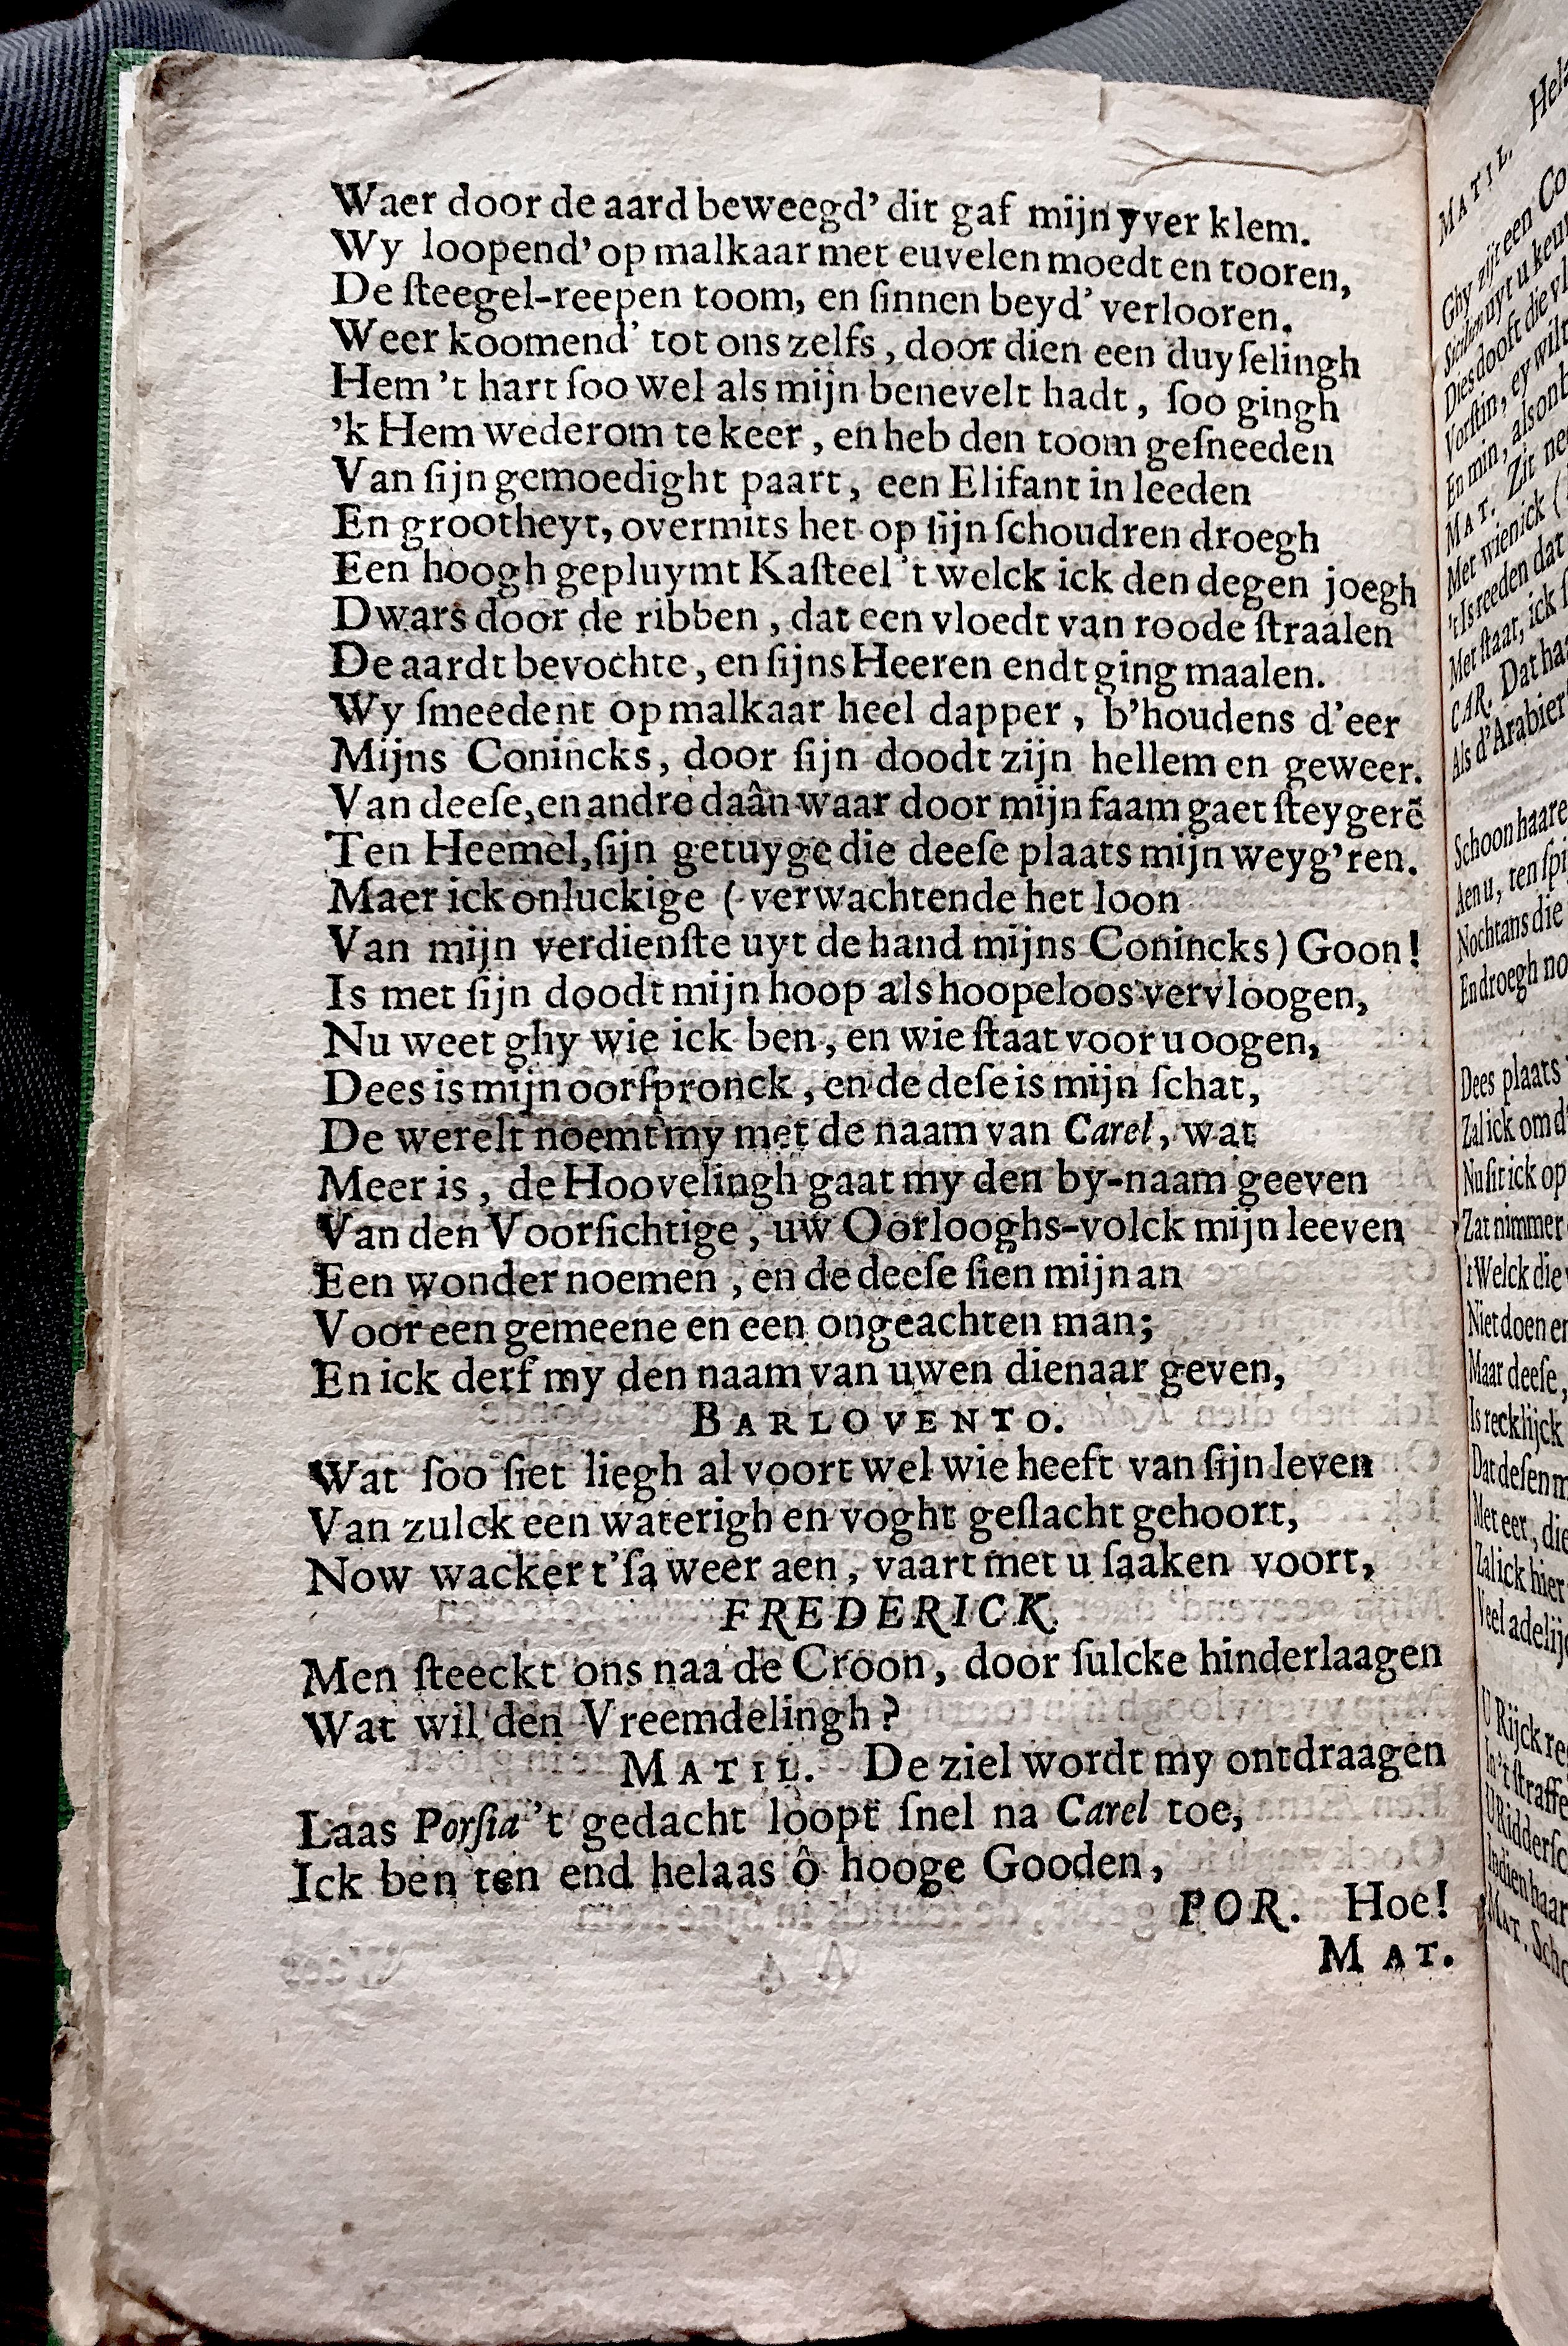 Waer door de aard beweegd' dit gaf mijn yver klem.
Wy loopend' op malkaar met euvelen moedt en tooren,
De ſteegel-reepen toom, en ſinnen beyd' verlooren.
Weer koomend' tot ons zelfs, door dien een duyſelingh
Hem 't hart ſoo wel als mijn benevelt hadt, ſoo gingh
'k Hem wederom te keer, en heb den toom geſneeden
Van ſijn gemoedight paart, een Elifant in leeden
En grootheyt, overmits het op ſijn ſchoudren droegh
Een hoogh gepluymt Kaſteel 't welck ick den degen joegh
Dwars door de ribben, dat een vloedt van roode ſtraalen
De aardt bevochte, en ſijns Heeren endt ging maalen.
Wy ſmeedent op malkaar heel dapper, b'houdens d'eer
Mijns Conincks, door ſijn doodt zijn hellem en geweer.
Van deeſe, en andre daân waar door mijn faam gaet ſteygerē
Ten Heemel, ſijn getuyge die deeſe plaats mijn weyg'ren.
Maer ick onluckige (verwachtende het loon
Van mijn verdienſte uyt de hand mijns Conincks) Goon!
Is met ſijn doodt mijn hoop als hoopeloos vervloogen,
Nu weet ghy wie ick ben, en wie ſtaat voor u oogen,
Dees is mijn oorſpronck, en de deſe is mijn ſchat,
De werelt noemt my met de naam van Carel, wat
Meer is, de Hoovelingh gaat my den by-naam geeven
Van den Voorſichtige, uw Oorlooghs-volck mijn leeven
Een wonder noemen, en de deeſe ſien mijn an
Voor een gemeene en een ongeachten man;
En ick derf my den naam van uwen dienaar geven,
BARLOVENTO.
Wat ſoo ſiet liegh al voort wel wie heeft van ſijn leven
Van zulck een waterigh en voght geſlacht gehoort,
Now wacker t'ſa weer aen, vaart met u ſaaken voort,
FREDERICK.
Men ſteeckt ons naa de Croon, door ſulcke hinderlaagen
Wat wil den Vreemdelingh?
MATIL. De ziel wordt my ontdraagen
Laas Porſia 't gedacht loopt ſnel na Carel toe,
Ick ben ten end helaas ô hooge Gooden,
POR. Hoe!
MAT.
MATIL. Hela
Ghy zijt een Co
Sicilien uyt u keur
Dies dooft die vl
Vorſtin, ey wilt
En min, als on
MAT. Zit ne
Met wien ick (
't Is reeden dat
Met ſtaat, ick ſ
CAR. Dat ha
Als d'Arabier
Schoon haare
Aen u, ten ſpi
Nochtans die
En droegh no
Dees plaats
Zal ick om d'
Nu ſit ick op
Zat nimmer
't Welck die
Niet doen en
Maar deeſe,
Is recklijck
Dat deſen m
Met eer, die
Zal ick hier
Veel adelij
U Rijck re
In 't ſtraffe
U Ridderſc
Indien haar
MAT. Scho